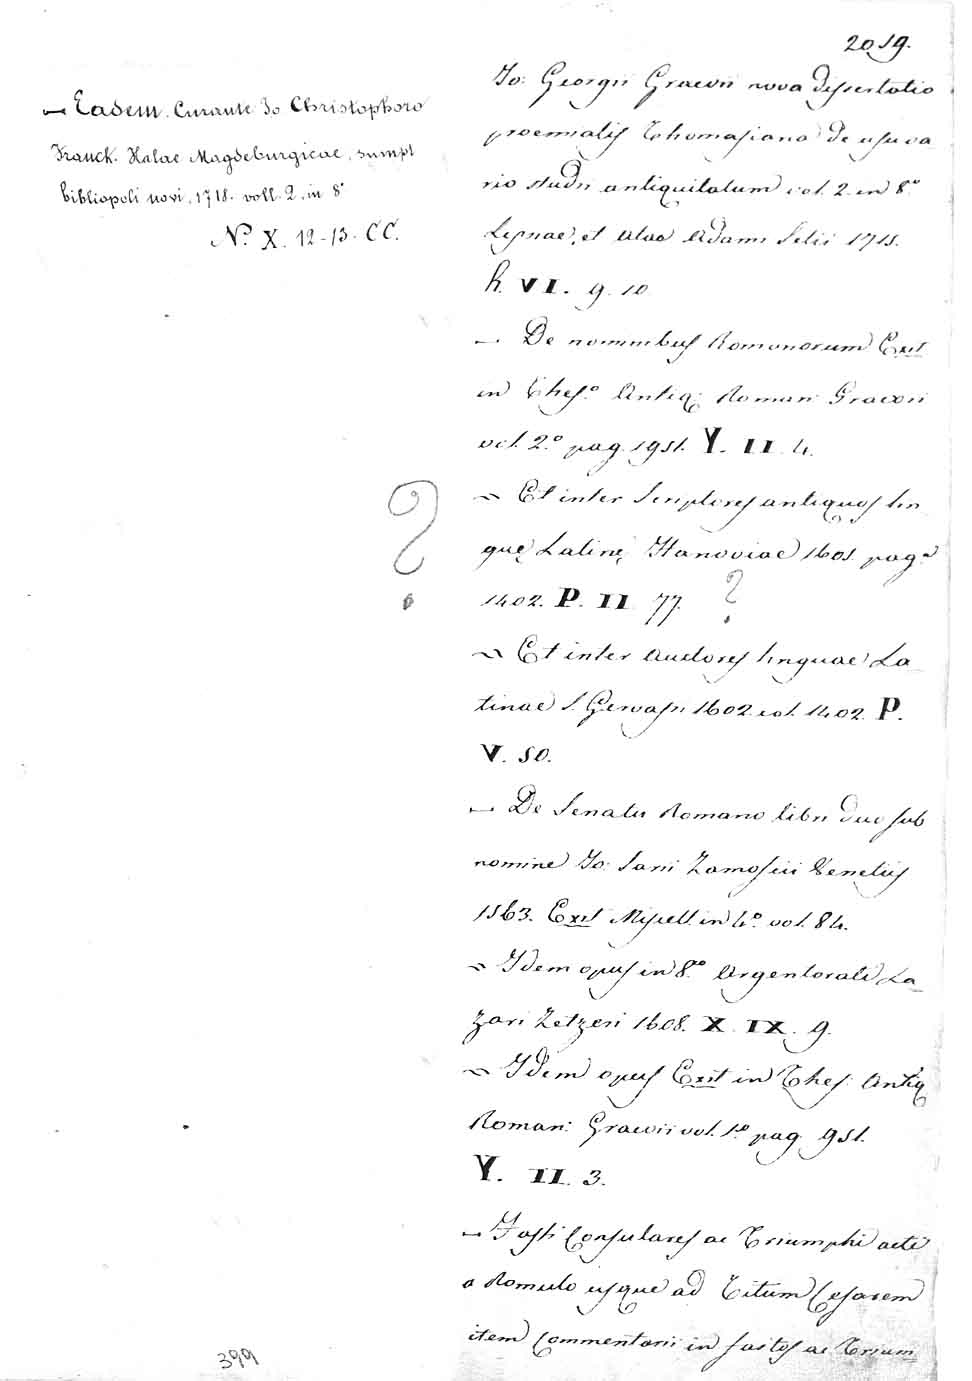 2019.
— Eadem. Curante Jo Christophoro
Franck. Halae Magdeburgicae, sumpt
bibliopoli novi, 1718. voll. 2. in 8°
N.° X. 12-13. CC.
Jo: Georgii Graevii nova dissertatio
proemialis Thomasiana de usu va
rio studii antiquitatum vol. 2. in 8.°
Lipsiae, et Adami
h. VI. 9. 10
— De nominibus Romanorum Exit
in Thes.° Antiq: Roman: Graevii
vol. 2.° pag. 1951. Y. II. 4.
~ Et inter Scriptores antiquos lin
guę Latinę Hanoviae 1601. pag.ª
1402. P. II 77. ?
?
~ Et inter Auctores linguae La_
tinae S. Gervasii 1602. col. 1402. P.
V. 50.
— De Senatu Romano libri duo sub
nomine Jo: Sarii Zamoscii Venetiis
1563. Exit Miscell. in 4.° vol. 84.
~ Idem opus in 8.° Argentorati La_
zari Zetzeri 1608. X. IX. 9.
~ Idem opus Exit in Thes: Antiq
Roman: Graevii vol. 1.° pag. 951.
Y. II. 3.
— Fasti Consulares ac Triumphi acti
a Romulo usque ad Titum Cesarem
item Commentarii in fastos ac Trium_
399